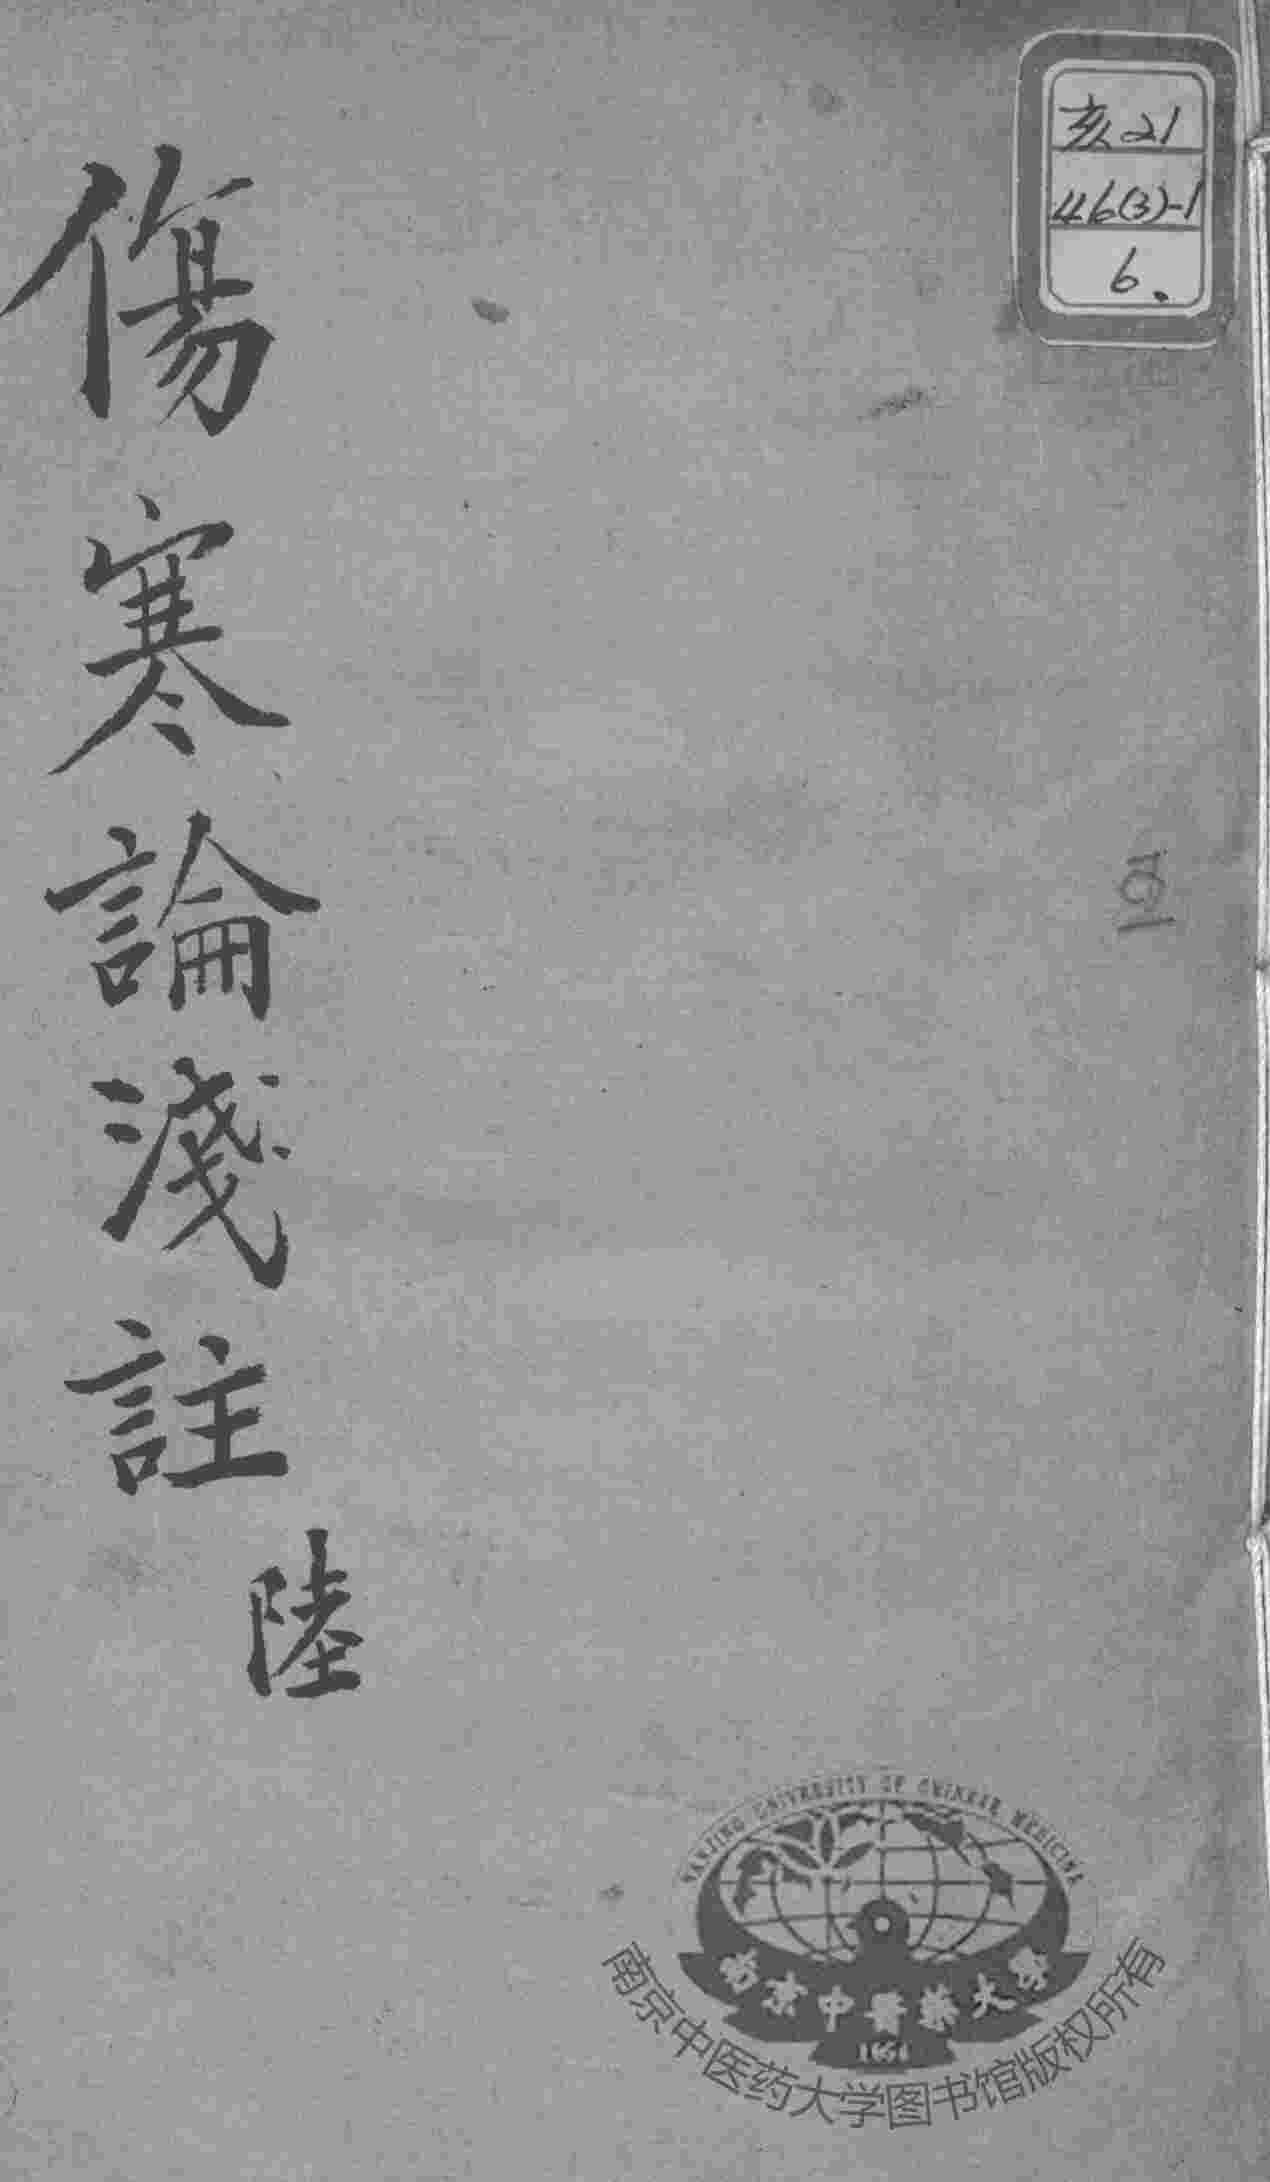 亥21
46(3)-1
6.
傷寒論淺註
陸
NANJING UNIVERSITY OF CHINESE MEDICINE
南京中醫藥大學
1954
南京中医药大学图书馆版权所有